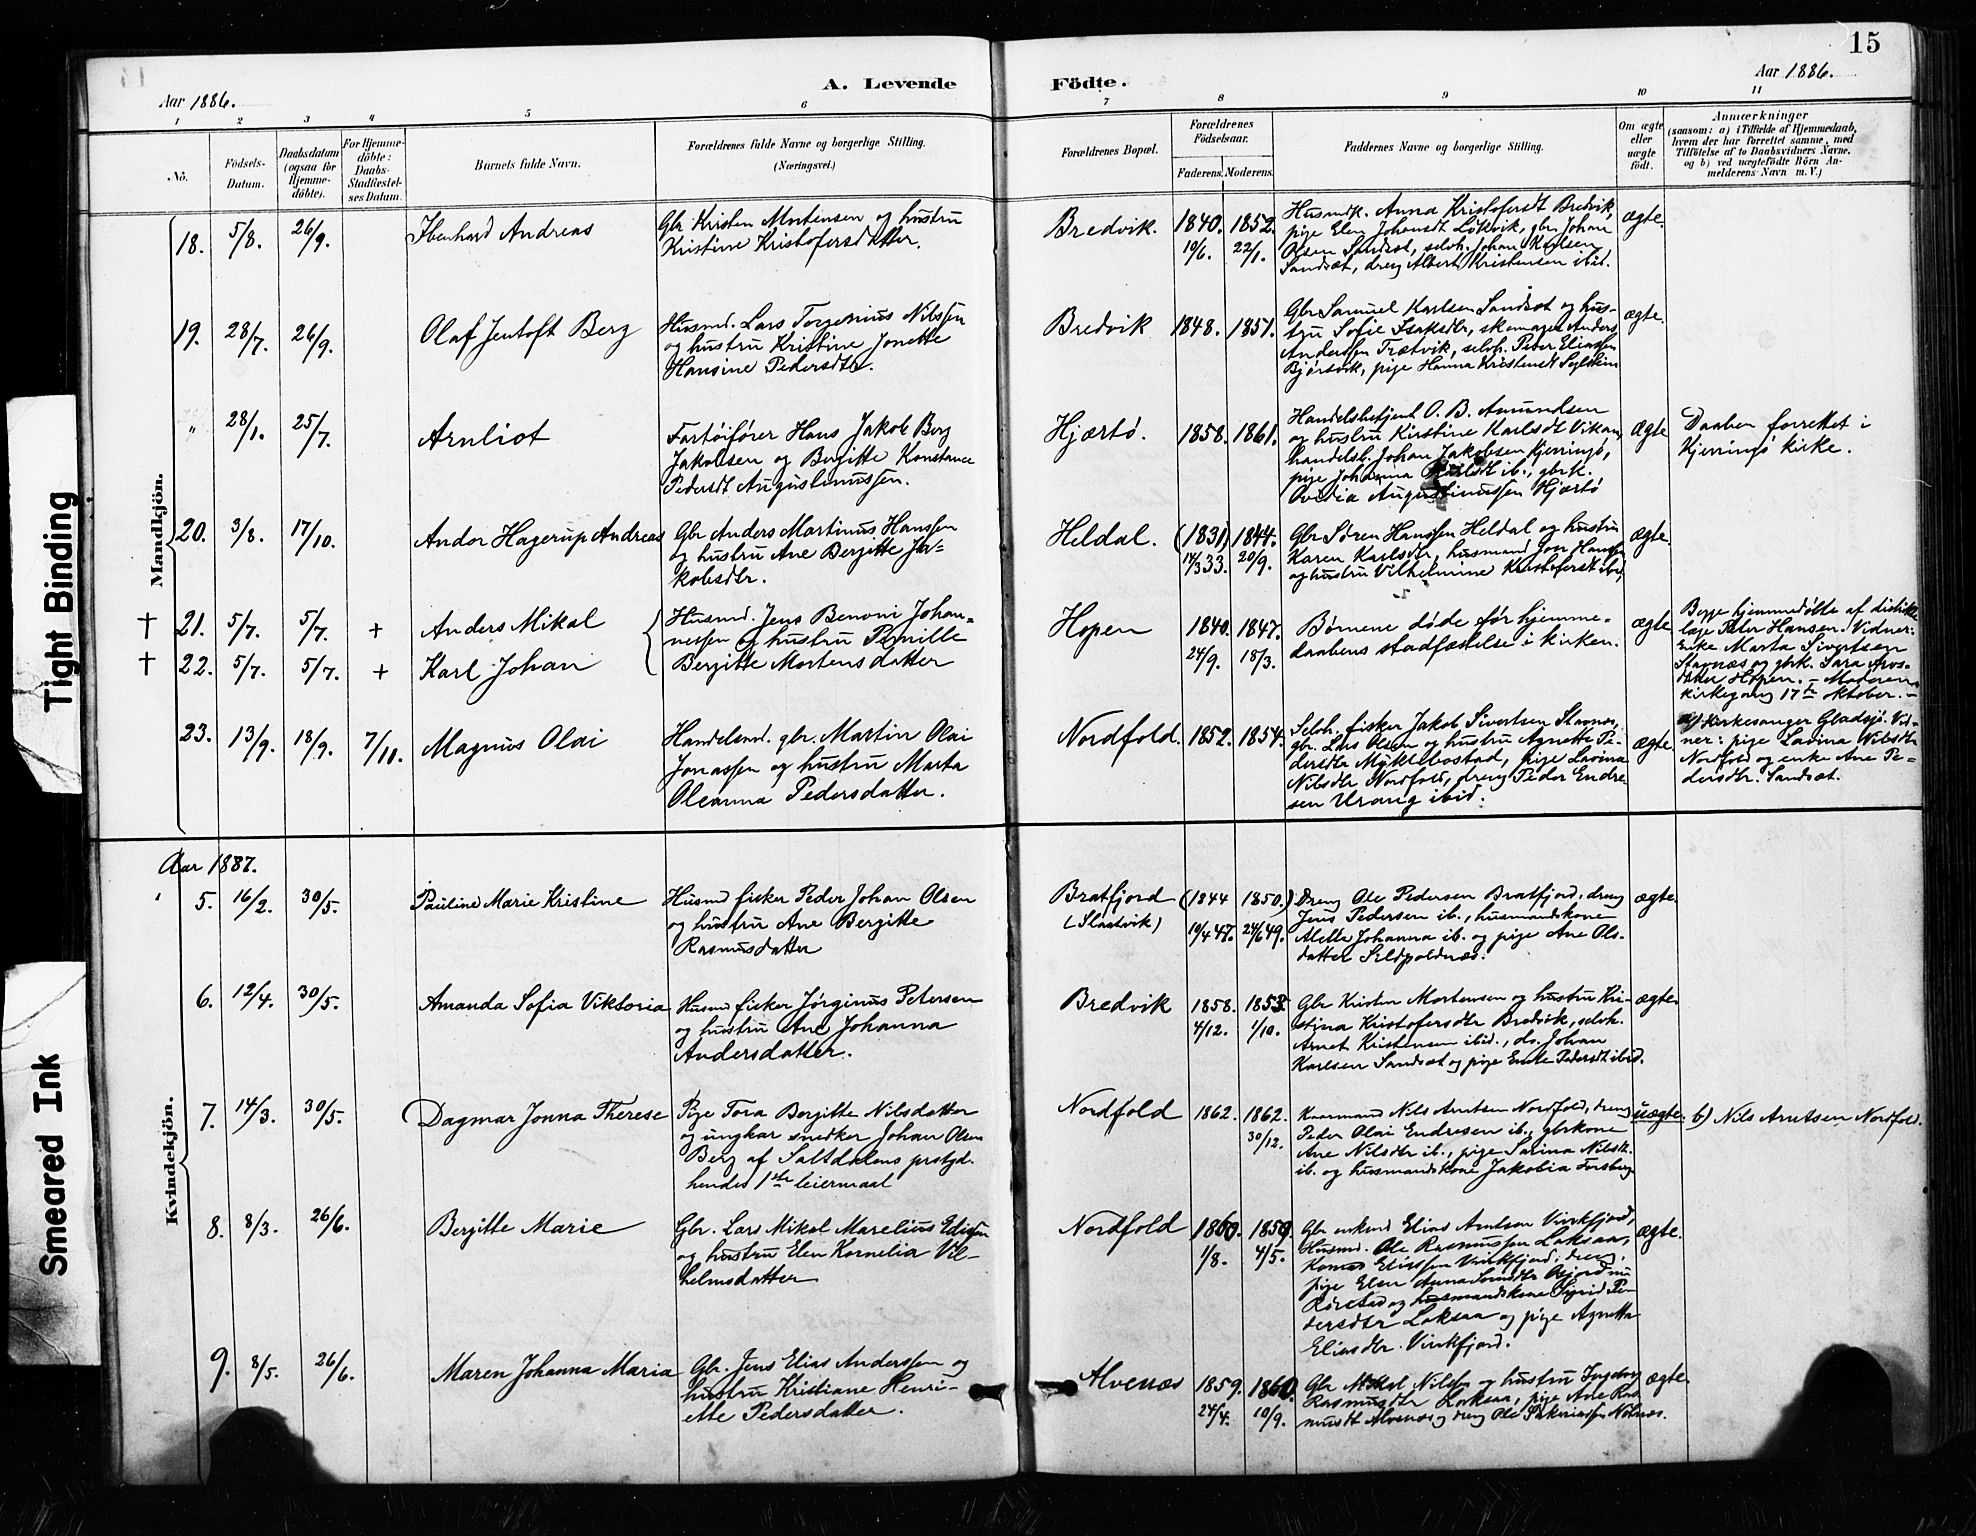 15
Aar 1886.
A. Levende Födte.
Aar 1886.
1 2 3 4 5 6 7 8 9 10 11
No.
Födsels-Datum.
Daabsdatum (ogsaa for Hjemme-döbte).
For Hjemme-döbte: Daabs-Stadfæstel-ses Datum.
Barnets fulde Navn.
Forældrenes fulde Navne og borgerlige Stilling.
(Næringsvei.)
Forældrenes Bopæl.
Forældrenes Födselsaar.
Faderens. Moderens.
Faddernes Navne og borgerlige Stilling.
Om ægte eller uægte födt.
Anmærkninger
(saasom: a) i Tilfælde af Hjemmedaab,
hvem der har forrettet samme, med
Tilföielse af to Daabsvidners Navne,
og b) ved uægtefödte Börn An-
melderens Navn m. V.)
Mandkjön.
18. 5/8. 26/9. Ibenhard Andreas
Gbr Kristen Mortensen og hustru
Kristine Kristofersdatter.
Bredvik. 1840. 1852.
19/6. 22/1.
Husmdk. Anna Kristofersdt Bredvik,
pige Elen Johansdt Løkvik, gbr. Johan
Olsen Sandsæt, selvh. Johan Karlsen
Sandsæt, dreng Albert Kristensen ibid.
ægte.
19. 28/7. 26/9. Olaf Jentoft Berg
Husmd. Lars Torgenius Nilssen
og hustru Kristine Jonette
Hansine Pedersdtr.
Bredvik 1848. 1851.
Gbr Samuel Karlsen Sandsæt og hus-
tru Sofie Isaksdtr, skomager Anders
Anderssen Trætvik, selvh. Peder Eliassen
Bjørsvik, pige Hanna Kristensdt
ægte.
" 28/1. 25/7. Arnliot
Fartøifører Hans Jakob Berg
Jakobsen og Bergitte Konstance
Pedersdt Augustinussen.
Hjærtø. 1858. 1861.
Handelsbetjent O. B. Amundsen
og hustru Kirstine Karlsdt Vikan,
handelsb. Johan Jakobsen Kjerringø,
pige Johanna ib., gbrk.
Ovidia Augustinussen Hjærtø
ægte
Daaben forrettet i
Kjerringø kirke.
20. 3/8. 17/10. Andor Hagerup Andreas
Gbr Anders Martinus Hanssen
og hustru Ane Bergitte Ja-
kobsdtr.
Heldal. (1831) 1844.
14/3 33. 20/9.
Gbr Søren Hanssen Heldal og hustru
Karen Karlsdtr, husmand Jon Hanssen
og hustru Vilhelmine Kristofersdt ibd,
ægte.
† 21. 5/7. 5/7. + Anders Mikal
† 22. 5/7. 5/7. + Karl Johan
Husmd. Jens Benoni Johan-
nessen og hustru Pernille
Bergitte Mortensdatter
Hopen 1840. 1847.
24/9. 18/3.
Børnene døde før hjemme-
daabens stadfæstelse i kirken.
ægte
Begge hjemmedøbte af distikts-
læge Peter Hansen. Vidner:
Enke Marta Sivertsen
Stavnæs og gbrk. Sara Aros-
datter Hopen. — Moderens
kirkegang 17de oktober. —
23. 13/9. 18/9. 7/10. Magnus Olai
Handelsmd. gbr. Martin Olai
Jonassen og hustru Marta
Oleanna Pedersdatter.
Nordfold. 1852. 1854.
Selvh. fisker Jakob Sivertsen Stavnes,
gbr. Lars Olsen og hustru Agnette Pe-
dersdtr Myklebostad, pige Lavina
Nilsdtr Nordfold, dreng Peder Endre-
sen Urang ibid.
ægte
a) Kirkesanger Gladsjø. Vid-
ner: pige Lavina Nilsdtr
Nordfold og enke Ane Pe-
dersdtr. Sandsæt.
Aar 1887.
Kvindekjön.
5. 16/2. 30/5. Pauline Marie Kristine
Husmd fisker Peder Johan Olsen
og hustru Ane Bergitte
Rasmusdatter
Bratfjord (1844 1850.)
(Slaatvik) 19/4 47. 24/6 49.
Dreng Ole Pedersen Bratfjord, dreng
Jens Pedersen ib., husmandskone
Alette Johanna ib. og pige Ane Ols-
datter
ægte.
6. 12/4. 30/5. Amanda Sofia Viktoria
Husmd fisker Jørginus Petersen
og hustru Ane Johanna
Andersdatter.
Bredvik 1858. 1853.
4/12. 1/10.
Gbr Kristen Mortensen og hustru Kri-
stina Kristofersdtr Bredvik, selvh.
Arnet Kristensen ibid., do. Johan
Karlsen Sandsæt og pige Enke Pedersdt ibid.
ægte
7. 14/3. 30/5. Dagmar Jonna Therese
Pige Tora Bergitte Nilsdatter
og ungkar snedker Johan Olsen
Berg af Saltdalens prstgjd.
hendes 1ste leiermaal
Nordfold 1862. 1862.
30/12.
Kaarmand Nils Arntsen Nordfold, dreng
Peder Olai Endresen ib., gbrkone
Ane Nilsdtr ib., pige Sarina Nilsdtr.
ib. og husmandskone Jakobia Forsberg
uægte.
b) Nils Arntsen Nordfold.
8. 8/3. 26/6. Bergitte Marie
Gbr. Lars Mikal Marelius Edissen
og hustru Elen Kornelia Vil-
helmsdatter
Nordfold 1860. 1859.
1/8. 4/5.
Gbr enkemd Elias Arntsen Vinkfjord,
Husmd. Ole Rasmussen Laksaa,
Eliassen Vinkfjord, dreng,
pige Elen Anna
Rørstad og husmandskone Sigrid Pe-
dersdtr Laksaa og pige Agnetta
Eliasdtr. Vinkfjord.
ægte.
9. 8/5. 26/6. Maren Johanna Maria
Gbr. Jens Elias Anderssen og
hustru Kristiane Henri-
ette Pedersdatter.
Alvenæs 1859. 1860.
24/4. 10/9.
Gbr Mikal Nilssen og hustru Ingeborg
Rasmusdtr Laksaa, pige Ane Ras-
musdt Alvenæs og dreng Ole
ægte
Tight Binding
Smeared Ink